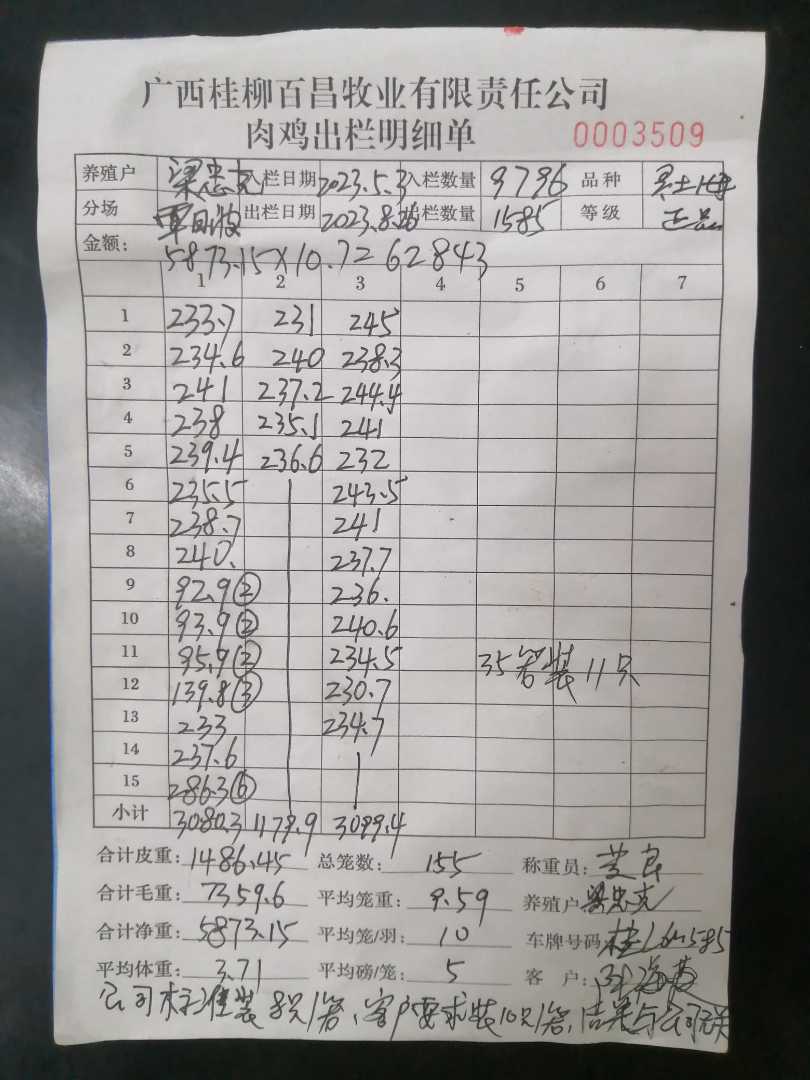 广西桂柳百昌牧业有限责任公司
肉鸡出栏明细单 0003509
养殖户 梁忠克 入栏日期 2023.5.3 入栏数量 9796 品种
分场 出栏日期 2023.8.26 出栏数量 1585 等级 正品
金额: 5873.15×10.72 62843
1 2 3 4 5 6 7
1 233.7 231 245
2 234.6 240 238.3
3 241 237.2 244.4
4 238 235.1 241
5 239.4 236.6 232
6 235.5 243.5
7 238.7 241
8 240. 237.7
9 92.9② 236.
10 93.9② 240.6
11 95.9② 234.5 35笼装11只
12 139.8③ 230.7
13 233 234.7
14 237.6
15 286.3⑥
小计 3080.3 1179.9 3099.4
合计皮重: 1486.45 总笼数: 155 称重员:
合计毛重: 7359.6 平均笼重: 9.59 养殖户 梁忠克
合计净重: 5873.15 平均笼/羽: 10 车牌号码
平均体重: 3.71 平均磅/笼: 5 客户:
公司标准装8只/笼、客户要求装10只/笼,后果与公司无关